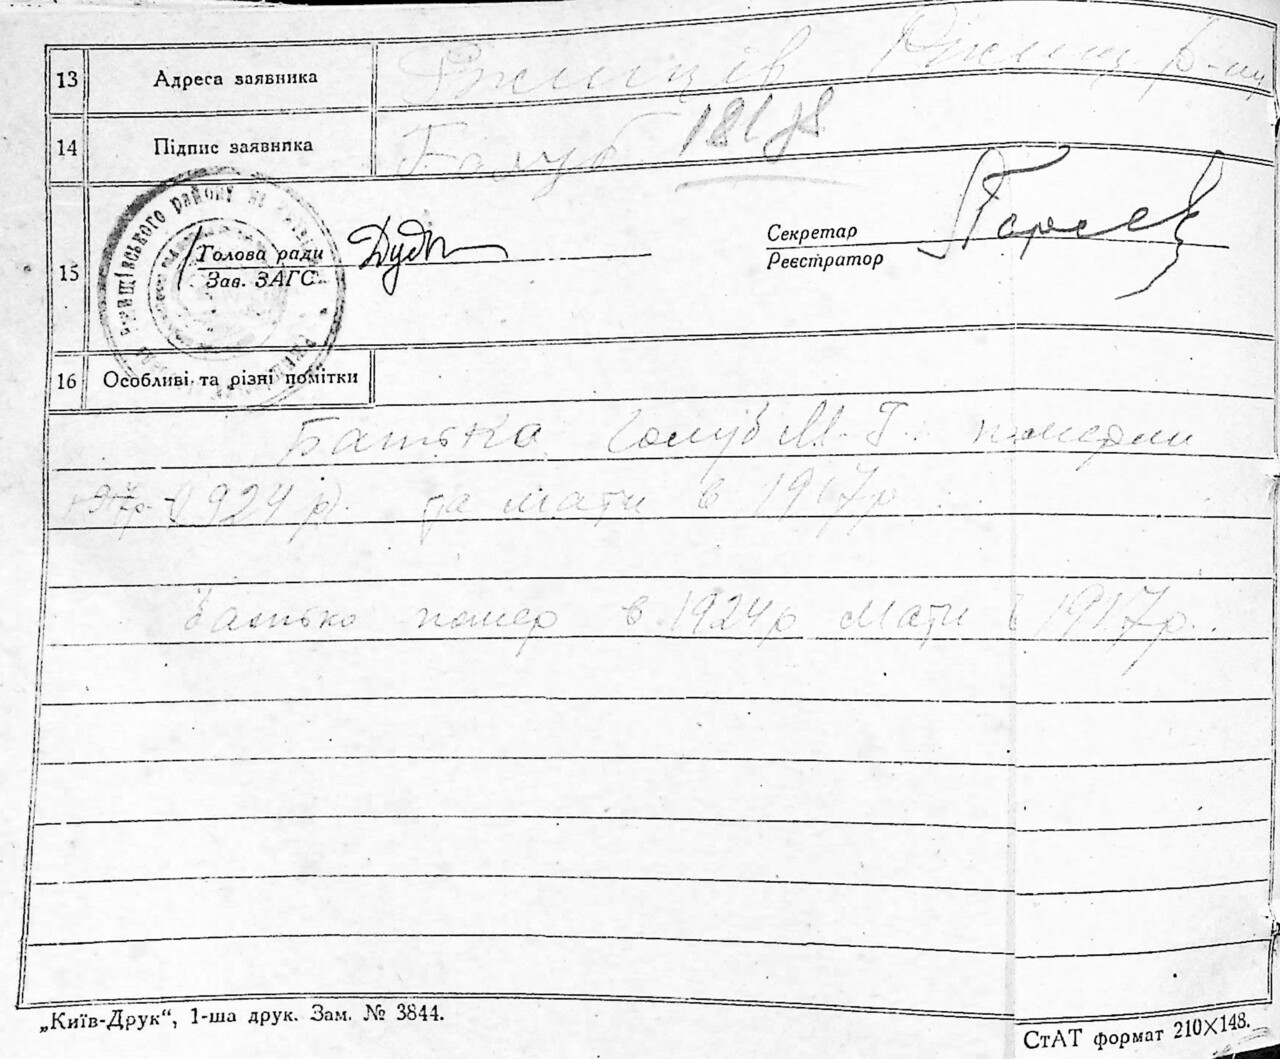 13 Адреса заявника Ржищів Ржищ. р-ну
14 Підпис заявника Голуб
15 Голова ради Секретар
Зав. ЗАГС Реєстратор
16 Особливі та різні помітки
Батько Голуб М. Г. померли
1924 р. та мати в 1917 р.
Батько помер в 1924 р мати в 1917 р.
„Київ-Друк“, 1-ша друк. Зам. № 3844.
СтАТ формат 210×148.